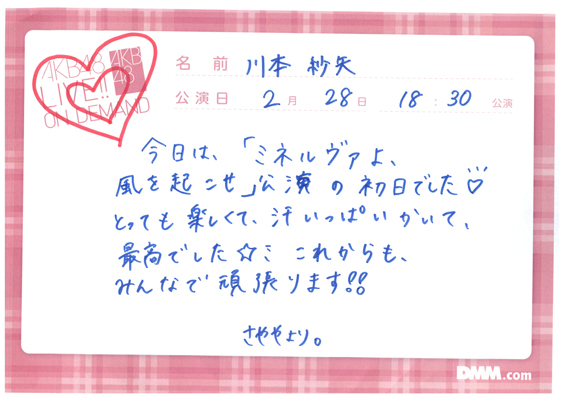 AKB48
LIVE!!
ON DEMAND
AKB
48
名 前 川本 紗矢
公演日 2月 28日 18:30 公演
今日は、「ミネルヴァよ、
風を起こせ」公演の初日でした♡
とっても楽しくて、汗いっぱいかいて、
最高でした☆ミ これからも、
みんなで頑張ります!!
さややより。
DMM.com